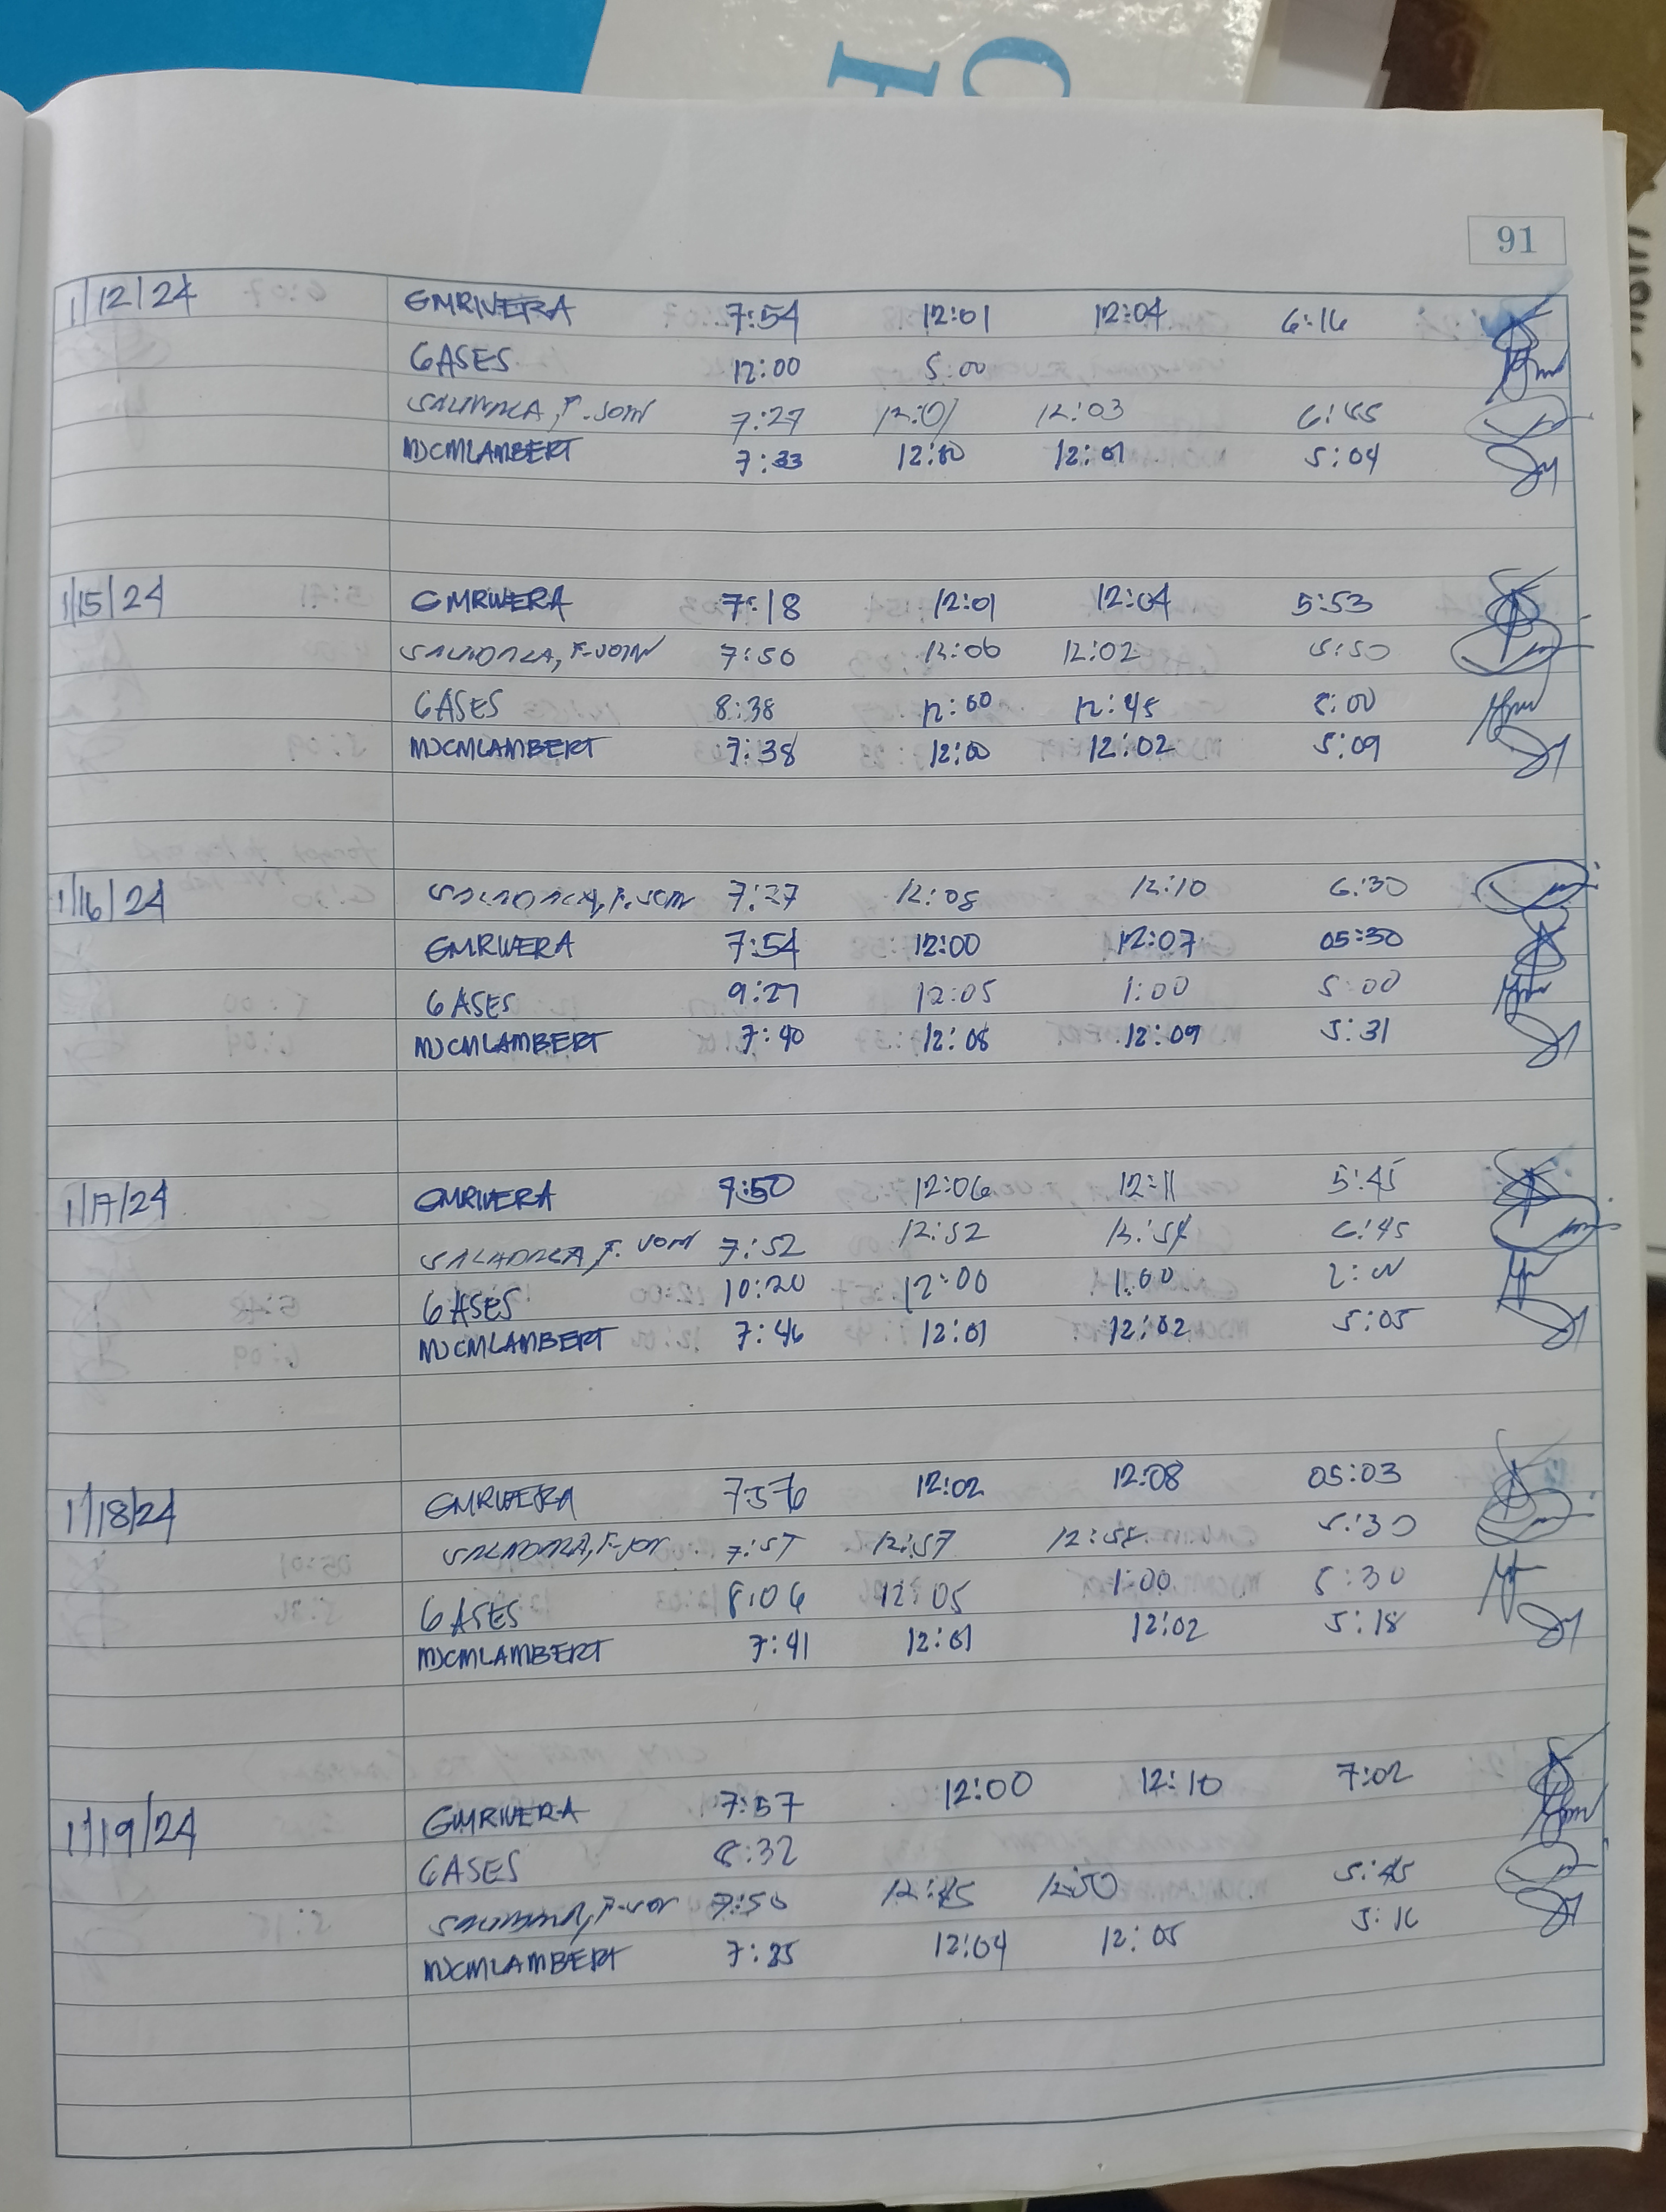 91
1/12/24 GMRIVERA 7:54 12:01 12:04 6:16
GASES 12:00 5:00
7:27 12:01 12:03 6:55
MJCMLAMBERT 7:33 12:00 12:01 5:04
1/15/24 GMRIVERA 7:18 12:01 12:04 5:53
7:50 12:02 5:50
GASES 8:38 12:00 12:45 5:00
MJCMLAMBERT 7:38 12:00 12:02 5:09
1/16/24 7:27 12:08 12:10 6:30
GMRIVERA 7:54 12:00 12:07 05:30
GASES 9:27 12:05 1:00 5:00
MJCMLAMBERT 7:40 12:08 12:09 5:31
1/17/24 GMRIVERA 7:50 12:06 12:11 5:45
7:52 12:52 12:54 6:45
GASES 10:20 12:00 1:00
MJCMLAMBERT 7:46 12:01 12:02 5:05
1/18/24 GMRIVERA 7:56 12:02 12:08 05:03
7:57 12:57 12:58 5:30
GASES 8:06 12:05 1:00 5:30
MJCMLAMBERT 7:41 12:01 12:02 5:18
1/19/24 GMRIVERA 7:57 12:00 12:10 7:02
GASES 8:32
7:50 12:45 12:50 5:45
MJCMLAMBERT 7:35 12:04 12:05 5:16